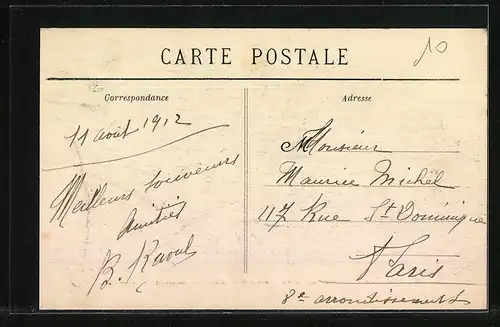 10
CARTE POSTALE
Correspondance
11 août 1912
Meilleurs souvenirs
Amitiés
B. Raoul
Adresse
Monsieur
Maurice Michel
117 Rue St Dominique
Paris
8e arrondissement